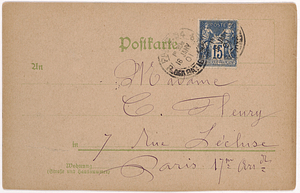 Postkarte
15
An
Madame
C. Fleury
in 7 Rue Lécluse
Paris 17me Arrdt
(Wohnung)
(Straße und Hausnummer)